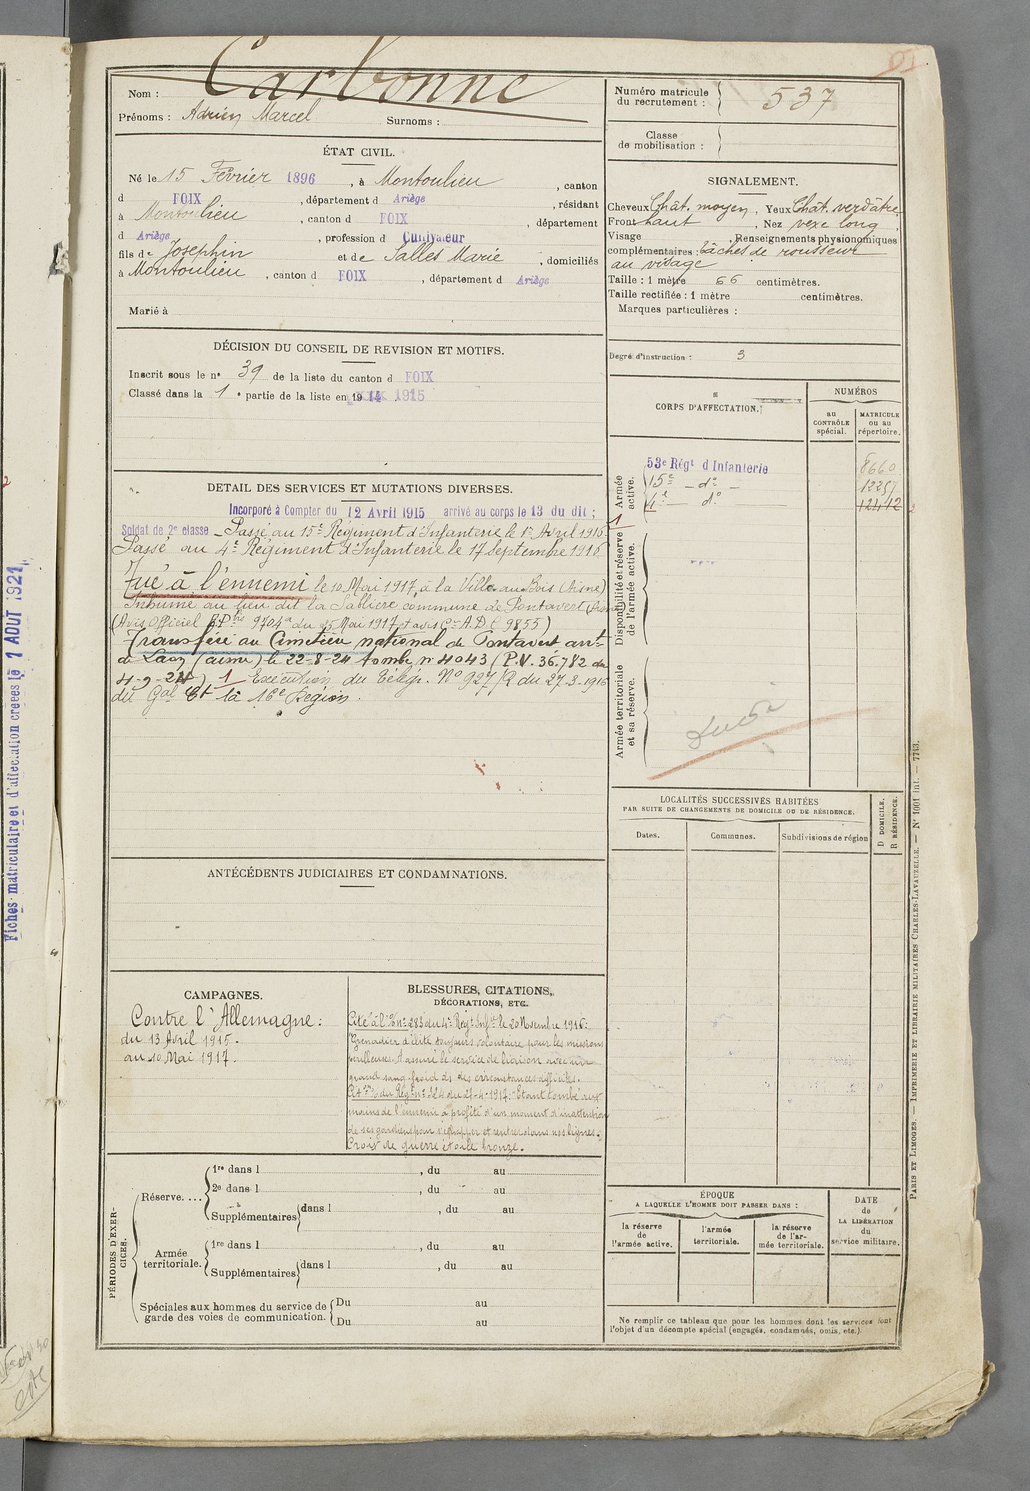 Carbonne
Nom :
Prénoms : Adrien Marcel Surnoms :
Numéro matricule du recrutement : 537
Classe de mobilisation :
ÉTAT CIVIL.
Né le 15 Février 1896, à Montoulieu, canton
d FOIX, département d Ariège, résidant
à Montoulieu, canton d FOIX, département
d Ariège, profession d Cultivateur
fils de Josephin et de Salles Marie, domiciliés
à Montoulieu, canton d FOIX, département d Ariège
Marié à
SIGNALEMENT.
Cheveux Chât. moyen, Yeux Chât. verdâtre,
Front haut, Nez vexe long,
Visage Renseignements physionomiques
complémentaires : tâches de rousseur
au visage
Taille : 1 mètre 66 centimètres.
Taille rectifiée : 1 mètre centimètres.
Marques particulières :
Degré d'instruction : 3
DÉCISION DU CONSEIL DE REVISION ET MOTIFS.
Inscrit sous le n° 39 de la liste du canton d FOIX
Classé dans la 1e partie de la liste en 1914 1915
CORPS D'AFFECTATION.
NUMÉROS
au CONTRÔLE spécial.
MATRICULE ou au répertoire.
Armée active.
53e Régt d'Infanterie 8660
15e - d° - 12257
4e - d° 12412
1
Disponibilité et réserve de l'armée active.
Armée territoriale et sa réserve.
DETAIL DES SERVICES ET MUTATIONS DIVERSES.
Incorporé à Compter du 12 Avril 1915 arrivé au corps le 13 du dit ;
Soldat de 2e classe - Passé au 15e Régiment d'Infanterie le 1er Avril 1916.
Passé au 4e Régiment d'Infanterie le 17 Septembre 1916
Tué à l'ennemi le 10 Mai 1917, à la Ville au Bois (Aisne)
Inhumé au lieu dit la Sablière commune de Pontavert (Aisne)
(Avis Officiel 9704 du 25 Mai 1917 9855)
Transféré au Cimetière national de Pontavert arrt
de Laon (aisne) le 22-8-24 tombe n° 4043 (P.V. 36.782 du
4-9-24) 1 Exécution du Télégr. N° 927/R du 27-3-1916
du Gal Ct la 16e Région.
LOCALITÉS SUCCESSIVES HABITÉES
PAR SUITE DE CHANGEMENTS DE DOMICILE OU DE RÉSIDENCE.
Dates. Communes. Subdivisions de région
D DOMICILE.
R RÉSIDENCE.
ANTÉCÉDENTS JUDICIAIRES ET CONDAMNATIONS.
CAMPAGNES.
Contre l'Allemagne :
du 13 Avril 1915.
au 10 Mai 1917.
BLESSURES, CITATIONS,
DÉCORATIONS, ETC.
Cité à l'O/ n° 283 du 4e Régt Infie le 20 Novembre 1916 :
Grenadier d'élite toujours volontaire pour les missions
périlleuses. A assuré le service de liaison avec un
grand sang froid ds des circonstances difficiles.
Cité O/ du Régt n° 324 du 27-4-1917 : Etant tombé aux
mains de l'ennemi a profité d'un moment d'inattention
de ses gardiens pour s'échapper et rentrer dans nos lignes.
Croix de guerre étoile bronze.
PÉRIODES D'EXERCICES.
Réserve.... 1re dans l , du au
2e dans l , du au
Supplémentaires dans l , du au
Armée territoriale. 1re dans l , du au
Supplémentaires dans l , du au
Spéciales aux hommes du service de garde des voies de communication. Du au
Du au
ÉPOQUE
A LAQUELLE L'HOMME DOIT PASSER DANS :
la réserve de l'armée active.
l'armée territoriale.
la réserve de l'armée territoriale.
DATE de LA LIBÉRATION du service militaire.
Ne remplir ce tableau que pour les hommes dont les services font
l'objet d'un décompte spécial (engagés, condamnés, omis, etc.).
PARIS ET LIMOGES. — IMPRIMERIE ET LIBRAIRIE MILITAIRES CHARLES-LAVAUZELLE. — N° 1001 int. — 7743.
Fiches matriculaire et d'affectation créées le 1 AOUT 1921